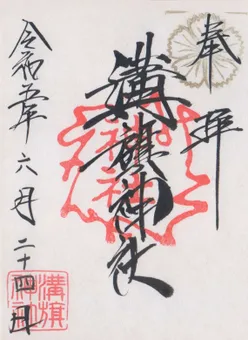 奉拝
溝旗神社
令和五年六月二十四日
溝旗神社